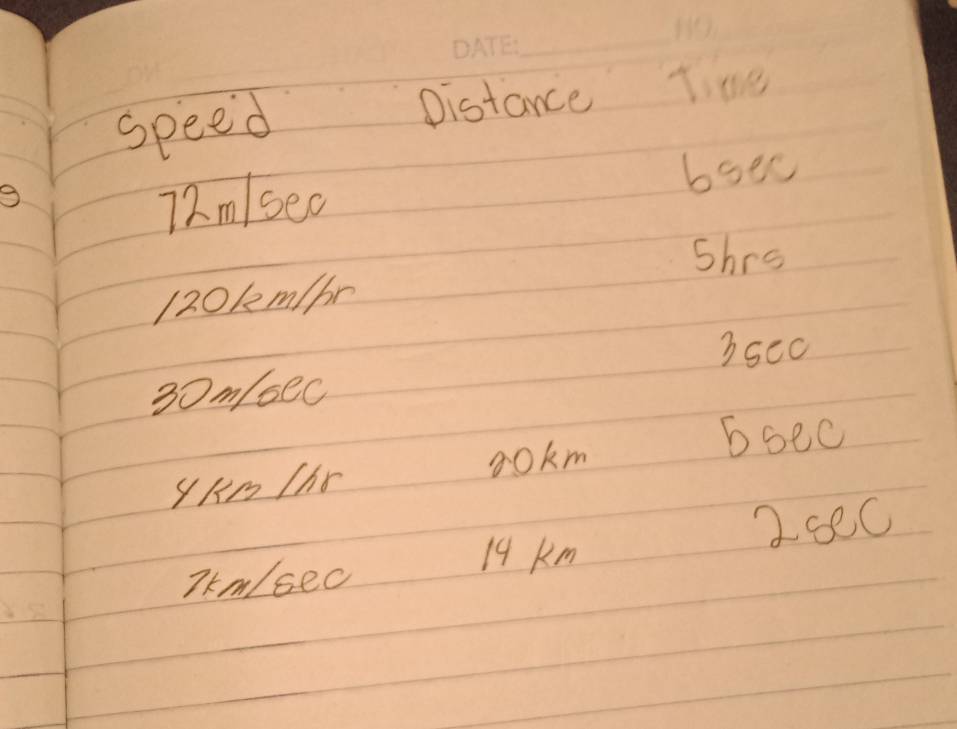 DATE: NO.
Speed Distance Time
72m/sec 6sec
120km/hr 5hrs
30m/sec 3sec
4km/hr 20km 5sec
7km/sec 14 km 2sec